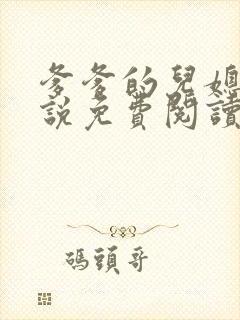 爹爹的兒媳
說免費閱讀
碼頭哥